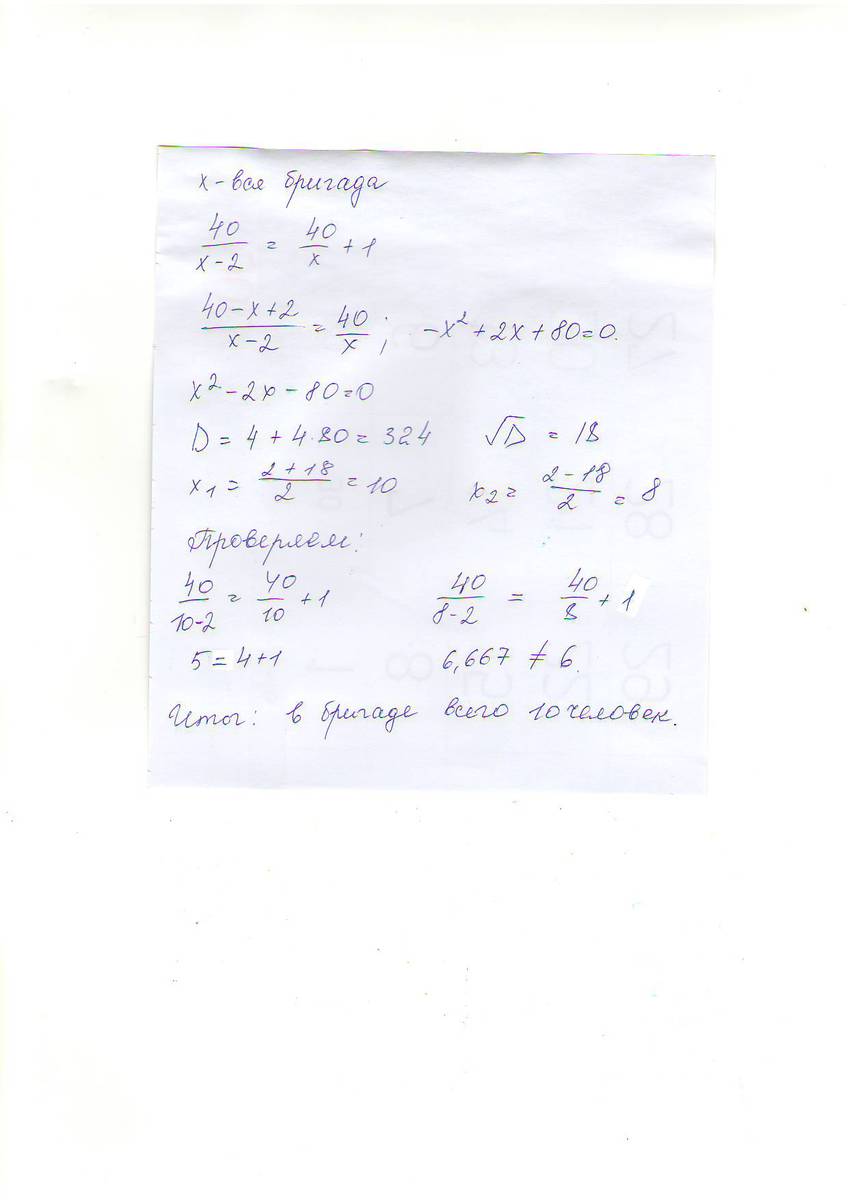 x - вся бригада
40/(x-2) = 40/x + 1
(40-x+2)/(x-2) = 40/x ; -x²+2x+80=0.
x²-2x-80=0
D = 4 + 4·80 = 324 √D = 18
x₁ = (2+18)/2 = 10 x₂ = (2-18)/2 = 8
Проверяем:
40/(10-2) = 40/10 + 1 40/(8-2) = 40/8 + 1
5 = 4+1 6,667 ≠ 6.
Итог: в бригаде всего 10 человек.